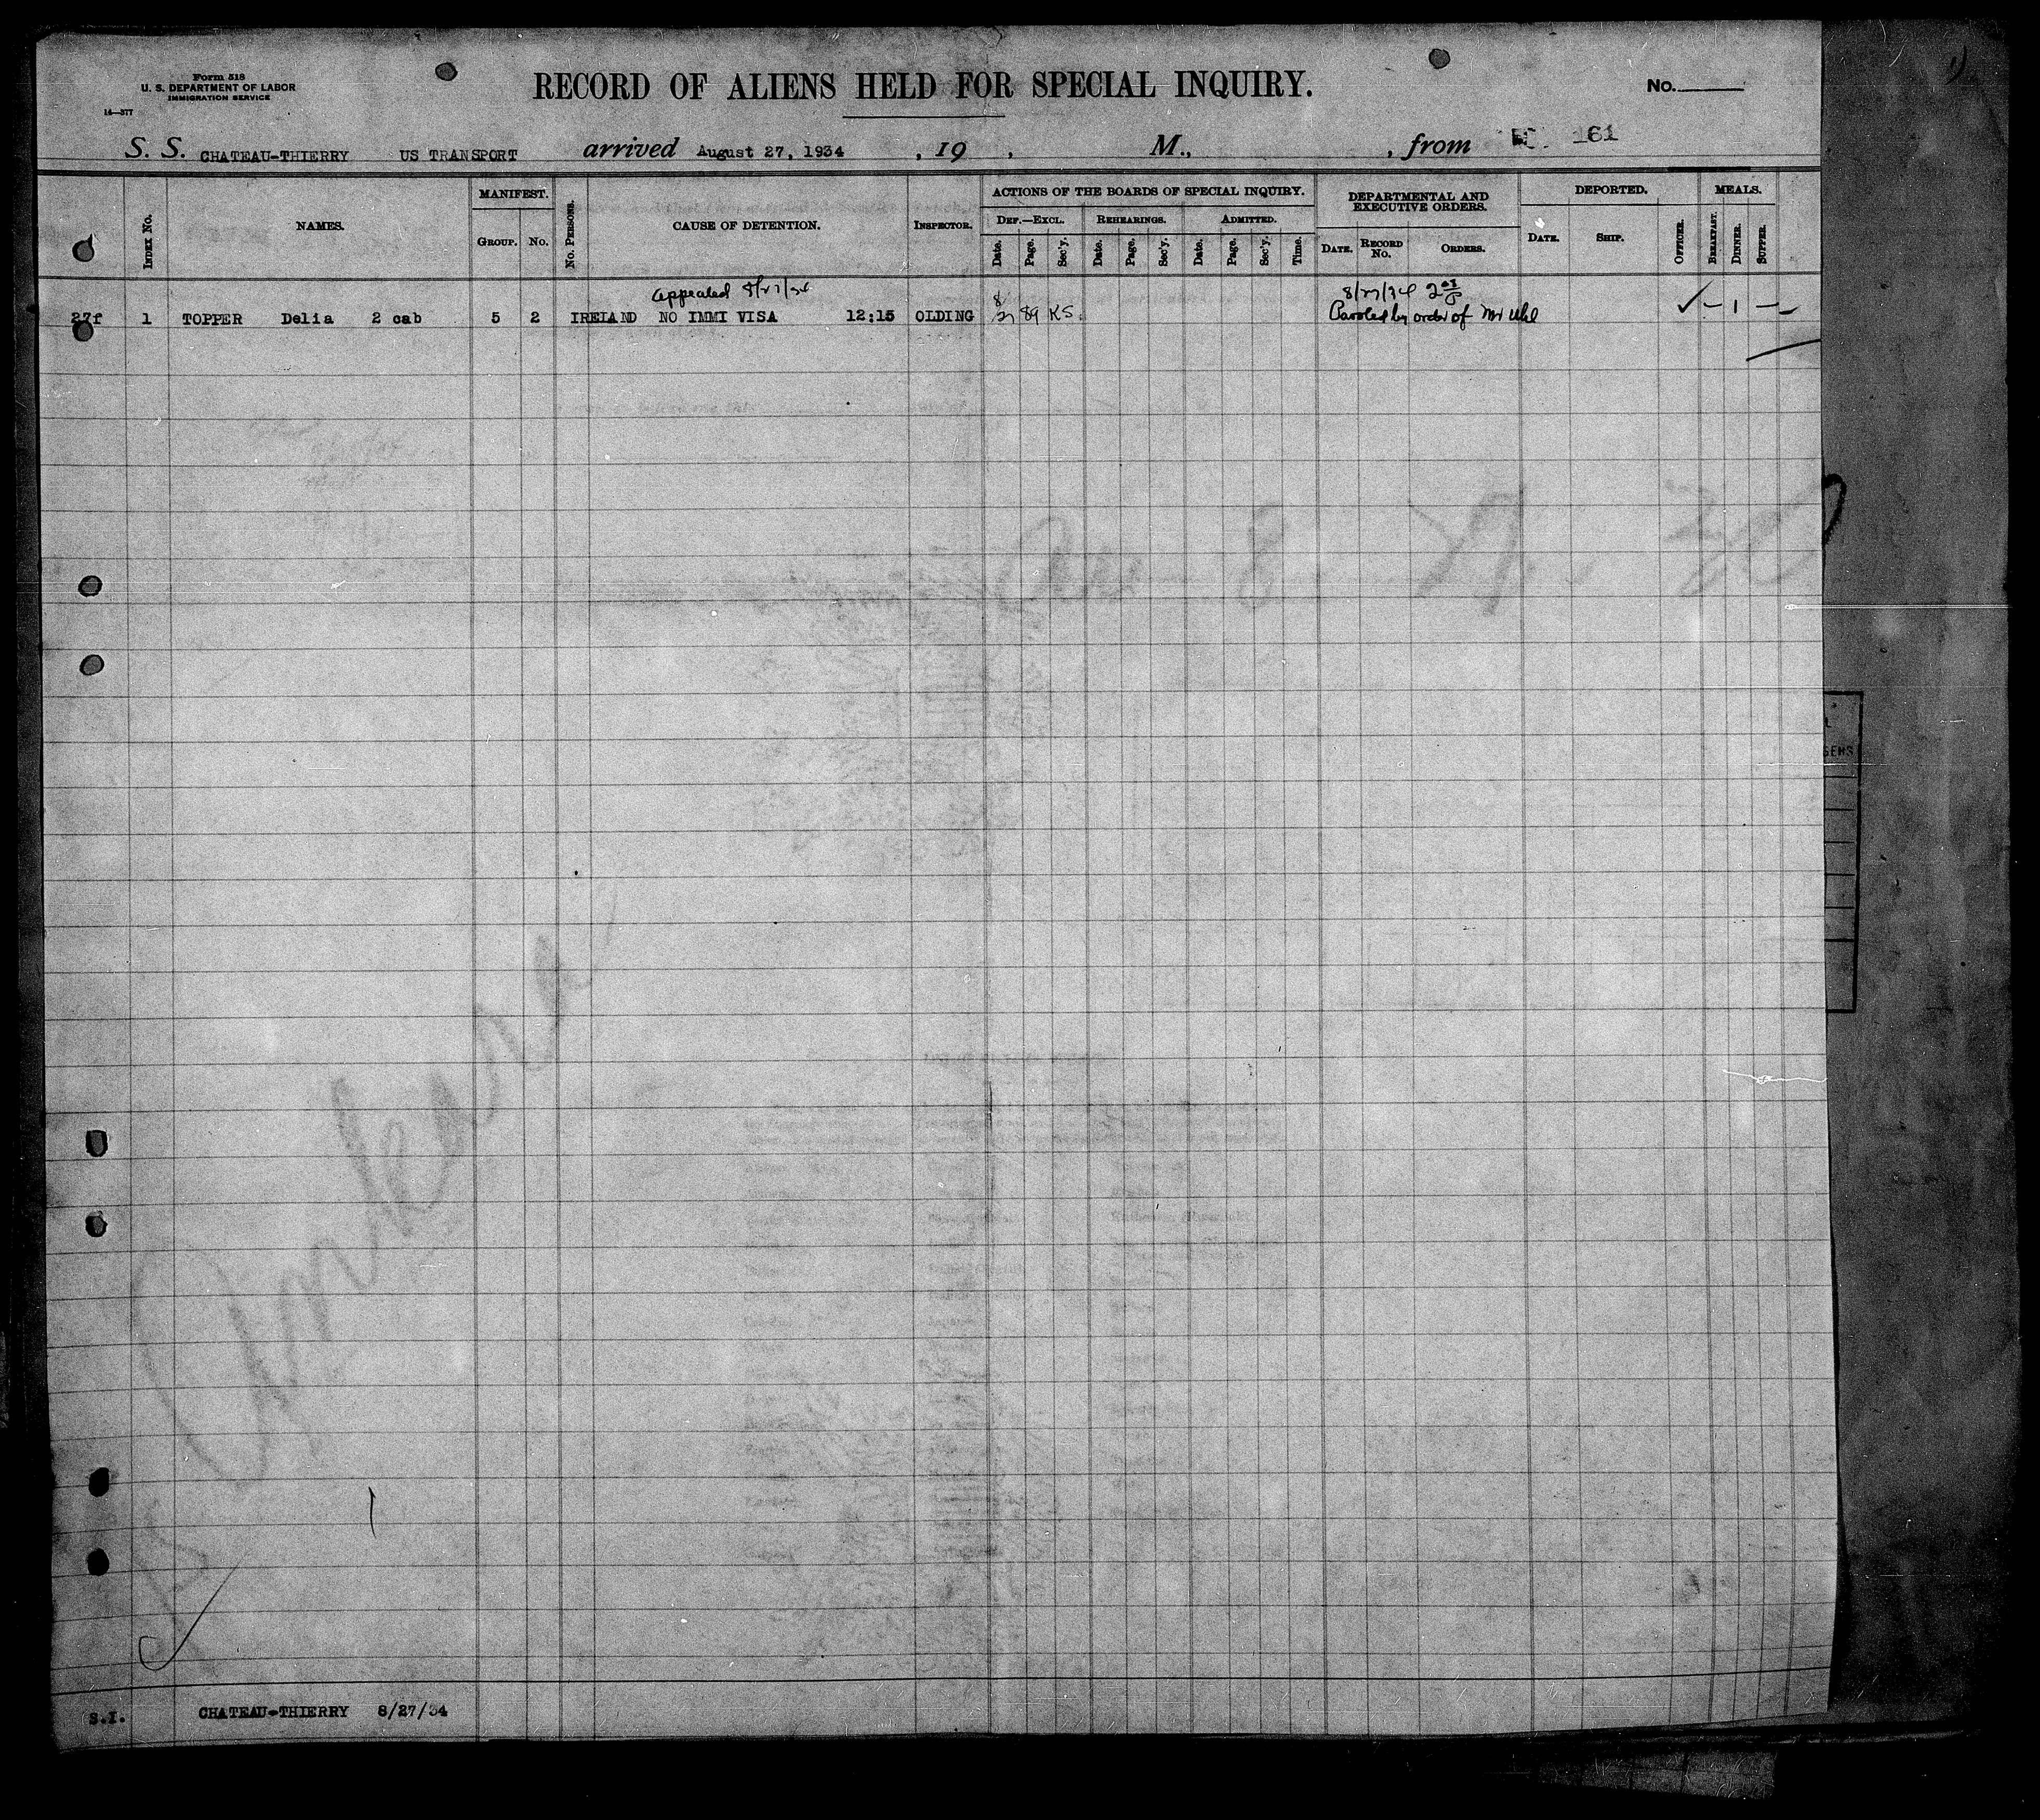 Form 518
U. S. DEPARTMENT OF LABOR
IMMIGRATION SERVICE
14—377
RECORD OF ALIENS HELD FOR SPECIAL INQUIRY.
No.
S. S. CHATEAU-THIERRY US TRANSPORT arrived August 27, 1934 , 19 , M., , from 161
INDEX No. NAMES. MANIFEST. GROUP. No. No. PERSONS. CAUSE OF DETENTION. INSPECTOR.
ACTIONS OF THE BOARDS OF SPECIAL INQUIRY.
DEF.—EXCL. Date. Page. Sec'y.
REHEARINGS. Date. Page. Sec'y.
ADMITTED. Date. Page. Sec'y. Time.
DEPARTMENTAL AND EXECUTIVE ORDERS. DATE. RECORD No. ORDERS.
DEPORTED. DATE. SHIP. OFFICER.
MEALS. BREAKFAST. DINNER. SUPPER.
appealed 8/27/34 8/27/34 2
27f 1 TOPPER Delia 2 cab 5 2 IRELAND NO IMMI VISA 12:15 OLDING 8/27 89 KS. Paroled by order of Mr Uhl ✓ — 1 —
S.I. CHATEAU-THIERRY 8/27/34